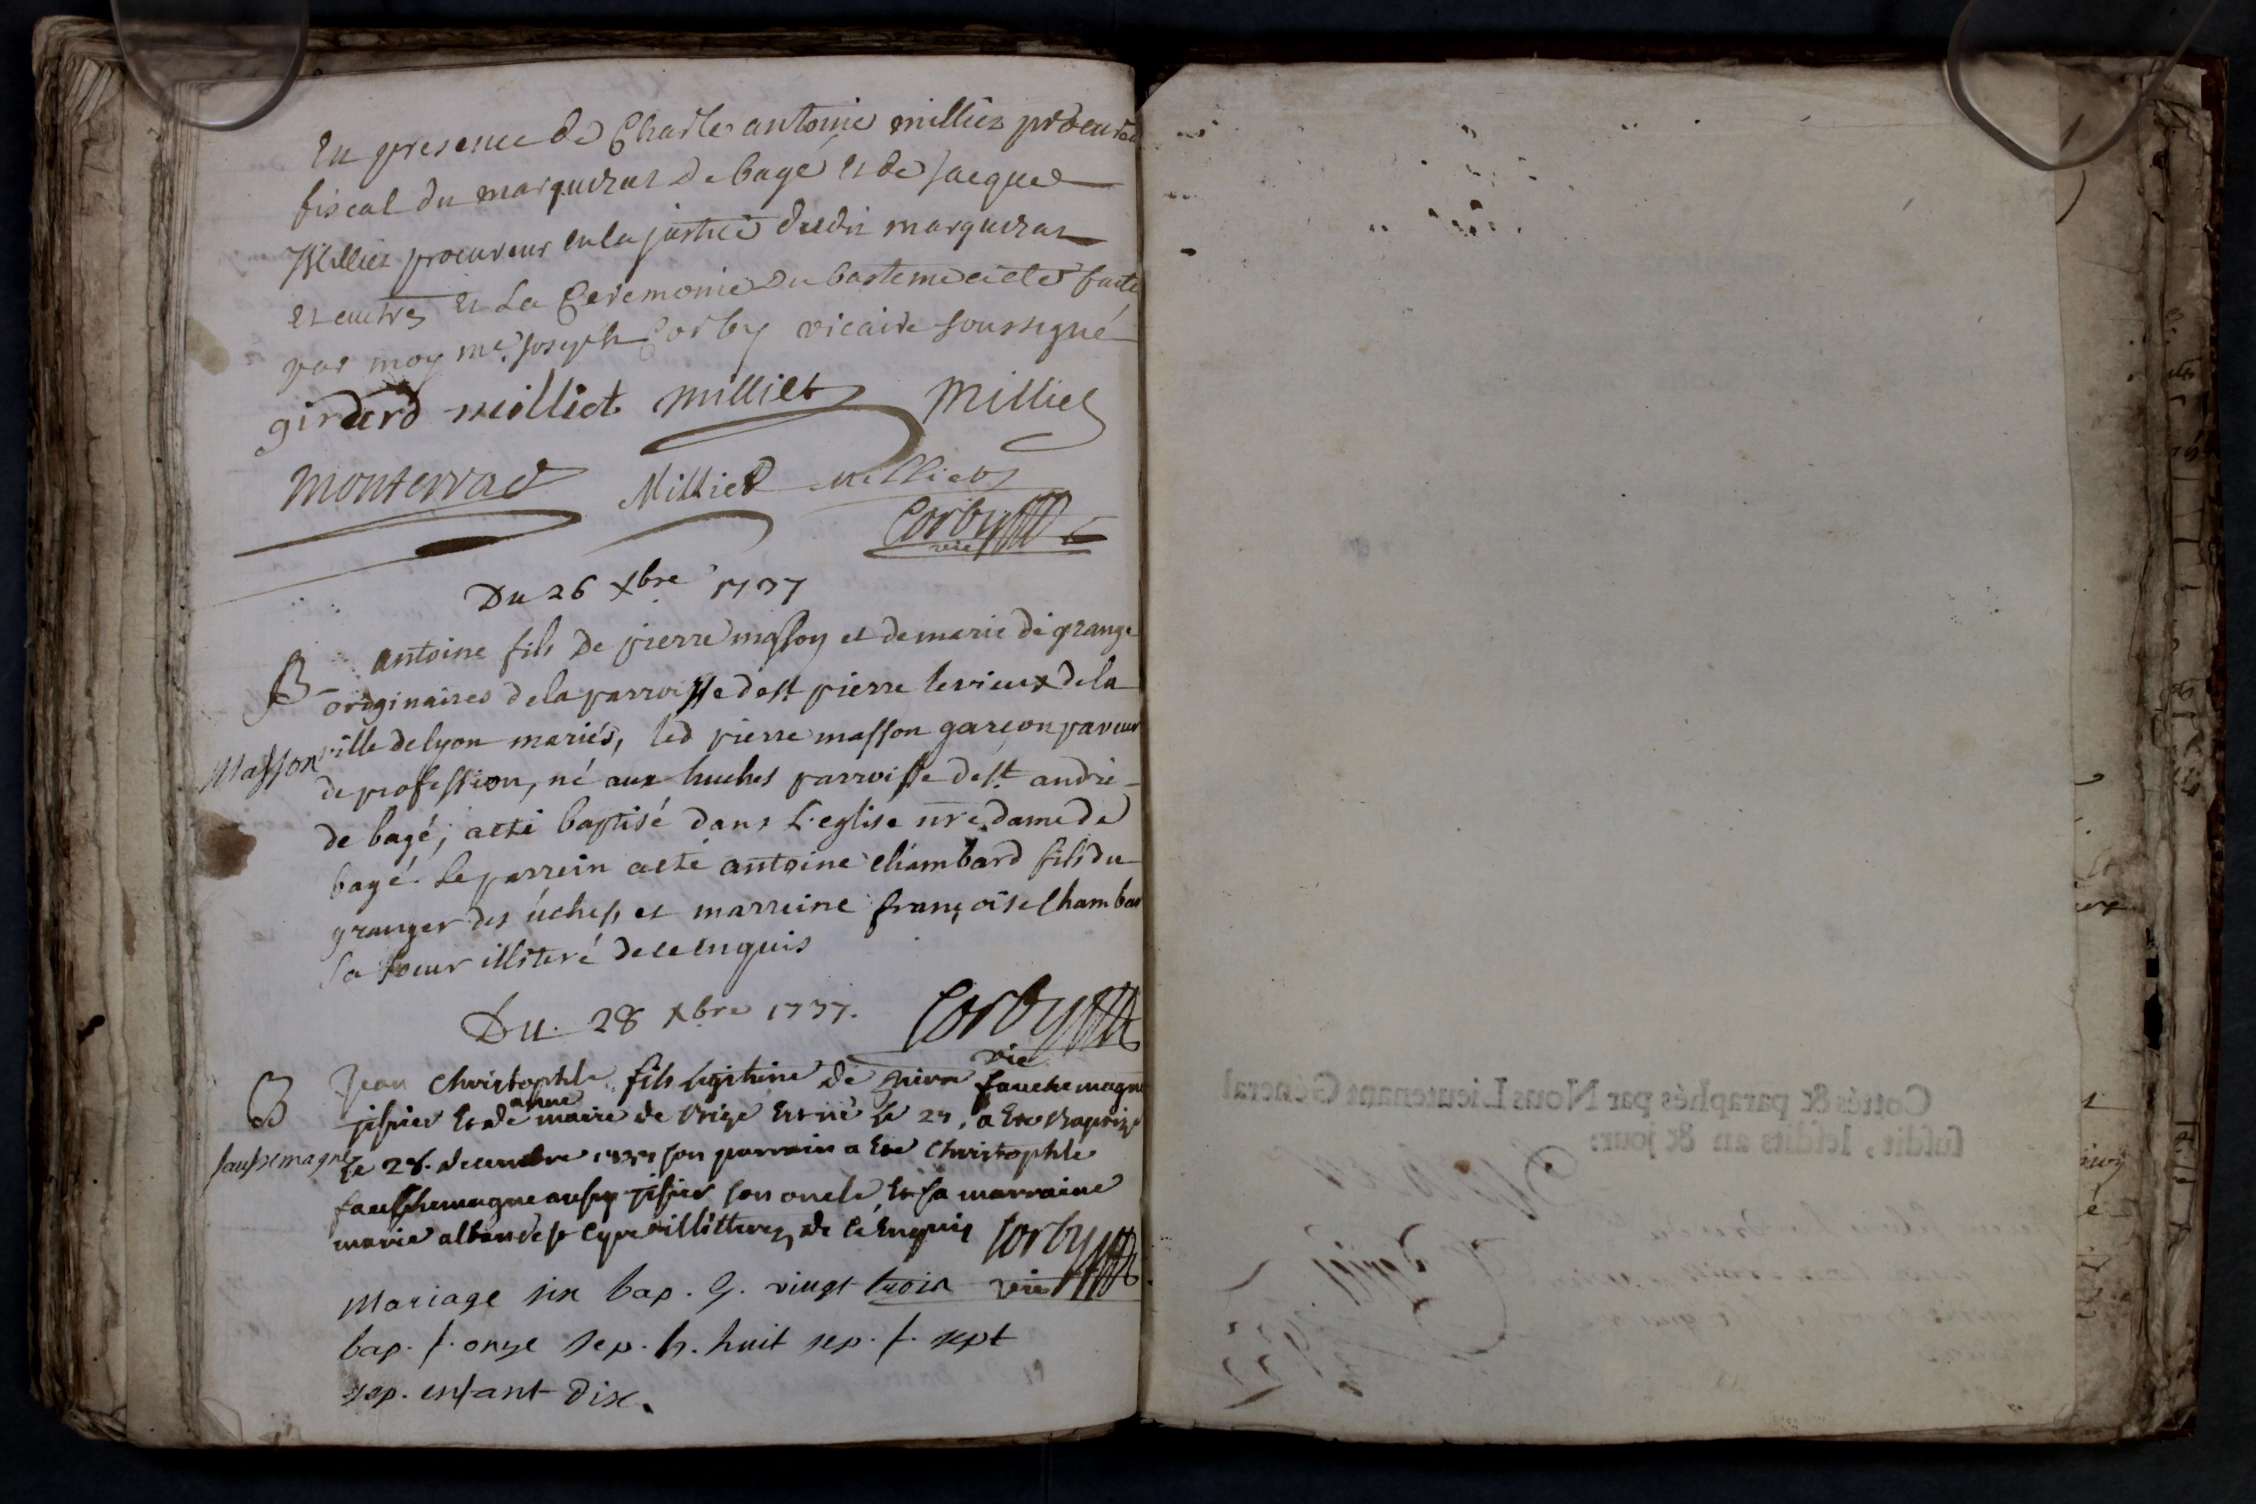 en presence de Charle antoine milliet procureu
fiscal du marquizat de bagé et de jacque
Milliet procureur en la justice dudit marquizat
et autres et la Ceremonie du bateme a ete faite
par moy me. joseph Corby vicaire soussigné
girard milliet milliet Milliet
monterrad Milliet milliet
Corby
vic
Du 26 Xbre 1737
B
antoine fils de pierre masson et de marie de grange
originaires de la parroisse de st. pierre le vieux de la
Masson
ville de lyon mariés, led pierre masson garçon paveur
de profession, né aux huches parroisse de st. andré
de bagé, a eté baptisé dans l'eglise nre dame de
bagé. Le parrein a eté antoine chambard fils du
granger des uches, et marreine françoise Chambar
sa soeur illiteré de ce enquis
Corby
vic
Du 28 Xbre 1737.
B
Jean Christophle fils legitime de fauchemagne
tissier et de anne marie de est né le 27, a ete baptizé
faussemagne
le 28. decembre 1737 son parrain a ete Christophle
fauchemagne aussy tissier son oncle et sa marraine
marie de st Cyre illitterez de ce enquis
Corby
vic
Mariage six bap. g. vingt trois
bap. f. onze sep. h. huit sep. f. sept
sep. enfant dix.
Cottés & paraphés par Nous Lieutenant Général
susdit, lesdits an & jour: